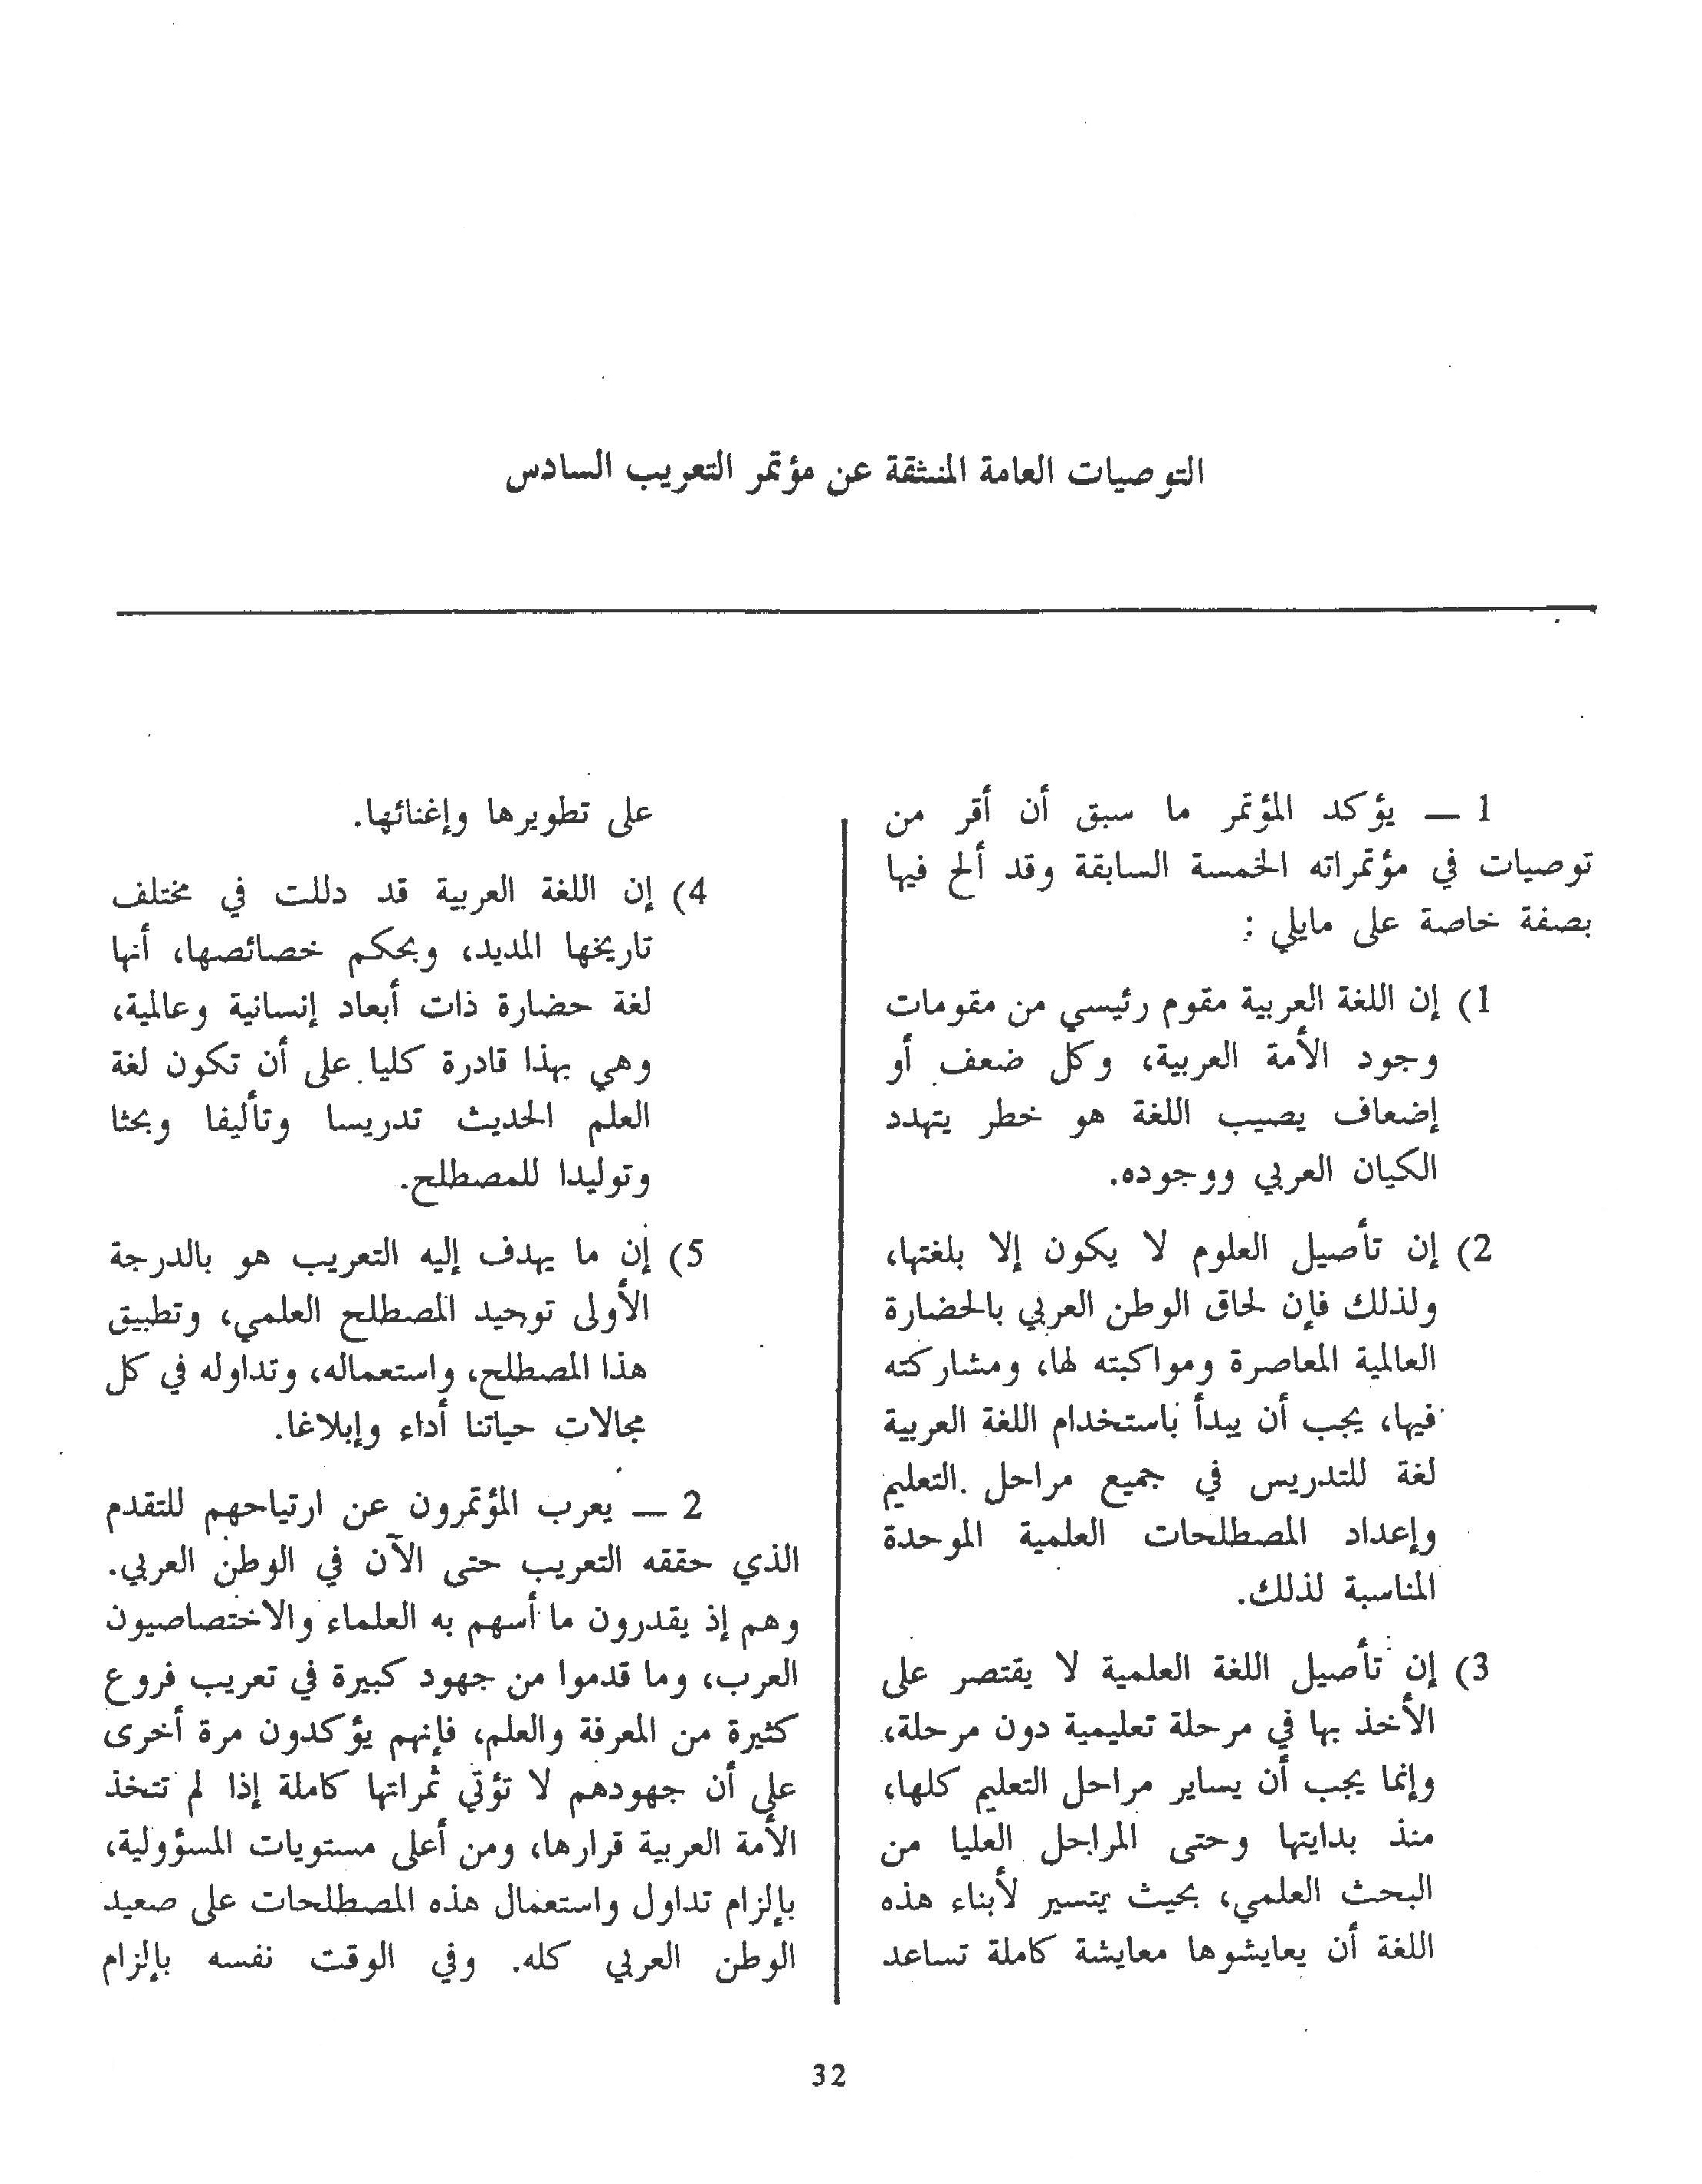 التوصيات العامة المنبثقة عن مؤتمر التعريب السادس
1 — يؤكد المؤتمر ما سبق أن أقر من
توصيات في مؤتمراته الخمسة السابقة وقد ألح فيها
بصفة خاصة على مايلي :
1) إن اللغة العربية مقوم رئيسي من مقومات
وجود الأمة العربية، وكل ضعف أو
إضعاف يصيب اللغة هو خطر يتهدد
الكيان العربي ووجوده.
2) إن تأصيل العلوم لا يكون إلا بلغتها،
ولذلك فإن لحاق الوطن العربي بالحضارة
العالمية المعاصرة ومواكبته لها، ومشاركته
فيها، يجب أن يبدأ باستخدام اللغة العربية
لغة للتدريس في جميع مراحل التعليم
وإعداد المصطلحات العلمية الموحدة
المناسبة لذلك.
3) إن تأصيل اللغة العلمية لا يقتصر على
الأخذ بها في مرحلة تعليمية دون مرحلة،
وإنما يجب أن يساير مراحل التعليم كلها،
منذ بدايتها وحتى المراحل العليا من
البحث العلمي، بحيث يتسير لأبناء هذه
اللغة أن يعايشوها معايشة كاملة تساعد
على تطويرها وإغنائها.
4) إن اللغة العربية قد دللت في مختلف
تاريخها المديد، وبحكم خصائصها، أنها
لغة حضارة ذات أبعاد إنسانية وعالمية،
وهي بهذا قادرة كليا على أن تكون لغة
العلم الحديث تدريسا وتأليفا وبحثا
وتوليدا للمصطلح.
5) إن ما يهدف إليه التعريب هو بالدرجة
الأولى توحيد المصطلح العلمي، وتطبيق
هذا المصطلح، واستعماله، وتداوله في كل
مجالات حياتنا أداء وإبلاغا.
2 — يعرب المؤتمرون عن ارتياحهم للتقدم
الذي حققه التعريب حتى الآن في الوطن العربي.
وهم إذ يقدرون ما أسهم به العلماء والاختصاصيون
العرب، وما قدموا من جهود كبيرة في تعريب فروع
كثيرة من المعرفة والعلم، فإنهم يؤكدون مرة أخرى
على أن جهودهم لا تؤتي ثمراتها كاملة إذا لم تتخذ
الأمة العربية قرارها، ومن أعلى مستويات المسؤولية،
بإلزام تداول واستعمال هذه المصطلحات على صعيد
الوطن العربي كله. وفي الوقت نفسه بإلزام
32